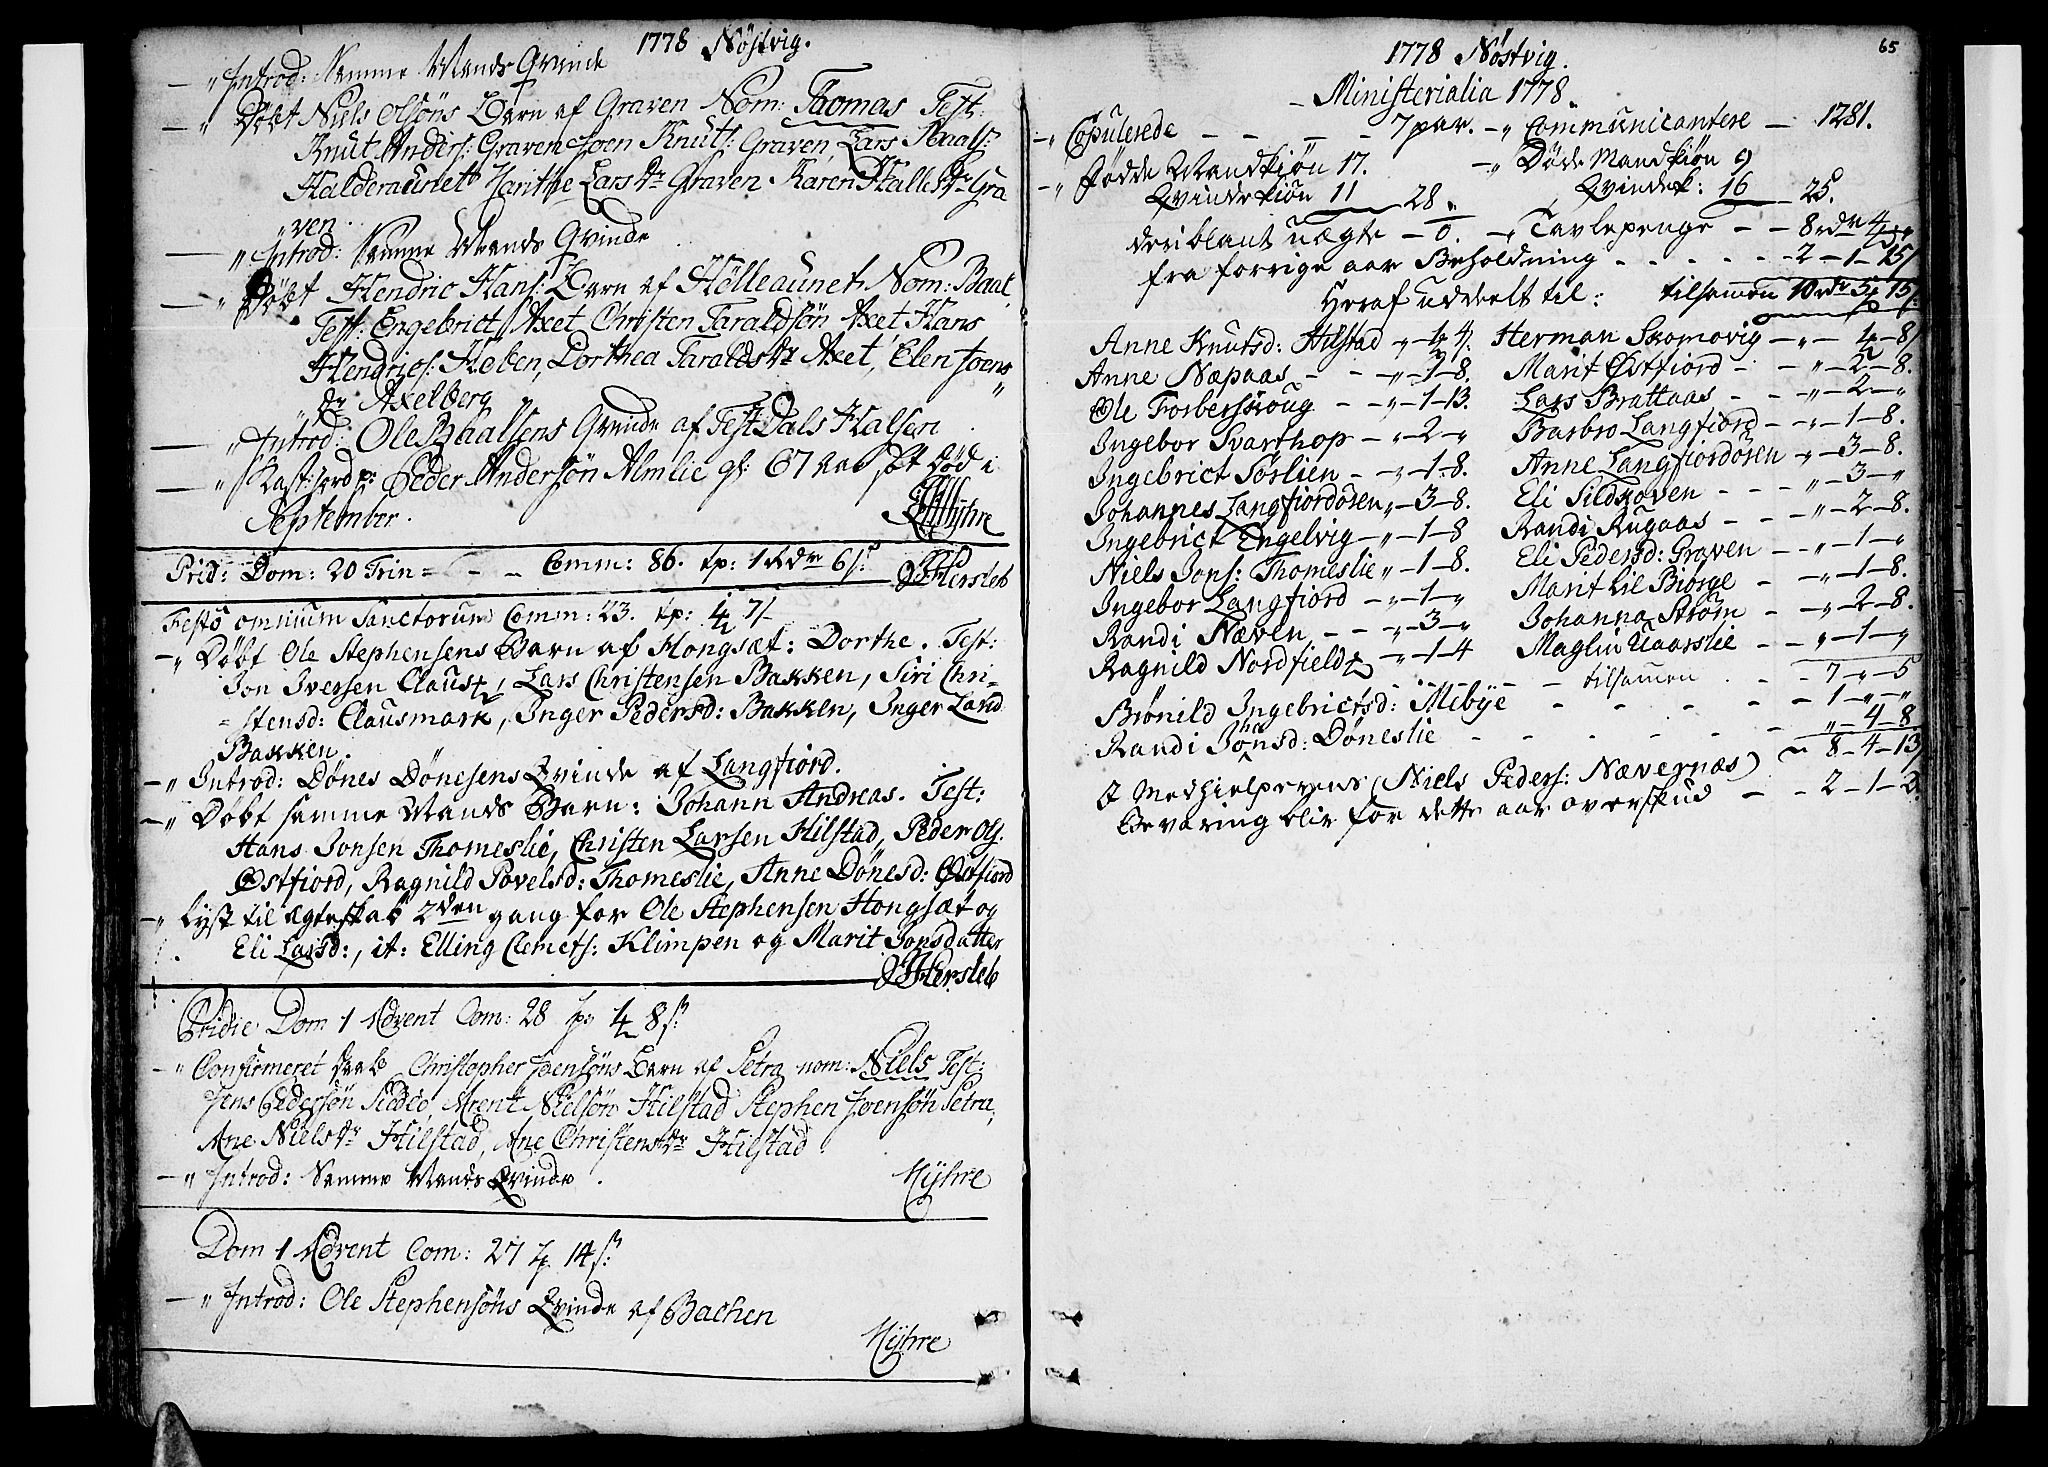 1778 Nøstvig.
— „ Introd: Samme Mands Qvinde
— „ Døbt Niels Olsøns Barn af Graven Nom: Thomas Test:
Knut Anders: Graven Joen Knuts: Graven, Lars Paals:
Halderaunet Zarithe Lars Dr Graven. Karen Halles Dr Gra
„ ven.
— „ Introd: Samme Mands Qvinde
— „ Døbt Hendric Hans: Barn af Hølleaunet Nom: Baal,
Test: Engebrict Axet, Christen Taraldsøn Axet Hans
Hendrics: Høben, Dorthea Taralds Dr Axet, Elen Joens
Dr Axelberg
— „ Introd: Ole Baalsens Qvinde af Test Dals Halsen
— „ Kast: Jord p: Peder Andersøn Almlie gl: 67 Aar død i
September.
Myhre
Prid: Dom: 20 Trin = — — Comm: 86. tp: 1 Rdr 6 s:
Hersleb
Festo omnium Sanctorum Comm: 23. tp: 4 7/
— „ Døbt Ole Stephensens Barn af Hongsæt: Dorthe. Test:
Jon Iversen Claust, Lars Christensen Bakken, Siri Chri-
= stensd: Clausmark, Inger Pedersd: Bakken, Inger Land
Bakken.
— „ Introd: Dønes Dønesens Qvinde af Langfiord.
— „ Døbt samme Mands Barn: Johann Andreas. Test:
Hans Jonsen Thomeslie, Christen Larsen Hilstad, Peder Ols.
Østfiord, Ragnild Povelsd: Thomeslie, Anne Dønesd: Østfiord
— „ Lyst til ægteskab 2den gang for Ole Stephensen Hongsæt og
Eli Larsd:, it: Elling Clemets: Klimpen og Marit Jonsdatter
Hersleb
Pridie Dom 1 Advent Com: 28 tp 4 8 s:
— „ Confirmeret Daab Christopher Joensøns Barn af Setra nom: Niels Test:
Jens Pedersøn, Arent Nielsøn Hilstad Stephen Joensøn Setra,
Ane Niels Dr Hilstad, Ane Christens Dr Hilstad
— „ Introd: Samme Mands Qvinde.
Myhre
Dom 1 Advent Com: 27 tp 14 s:
— „ Introd: Ole Stephensøns Qvinde af Bachen
Myhre
65
1778 Nøstvig.
— Ministerialia 1778
— „ Copulerede — — — — 7 par. — „ Communicantere — 1281.
— „ Fødde Mandkiøn 17. — „ Døde Mandkiøn 9
Qvindekiøn 11 28. Qvindek: 16 25.
deriblant uægte — 0. — „ Tavlepenge — — 8 rdr 4 „
fra forrige aar Beholdning - - - - - - 2-1-15/
Heraf uddeelt til: tilsamen 10 rdr 5 15/
Anne Knutsd: Hilstad „-1-4. Herman Skomovig — „ — 4-8/
Anne Næpaas - - „-1-8. Marit Østfiord - - „-2-8.
Ole Forberskoug - - „-1-13. Lars Brattaas - - „-2-„
Ingebor Svarthop - „-2-„ Barbro Langfiord - „-1-8.
Ingebrict Sørlien - - „-1-8. Anne Langfiordøsen „-3-8.
Johannes Langfiordøsen „-3-8. Eli Sildhoven - - - „-3-„
Ingebrict Engelvig - „-1-8 Randi Rugaas - - - „-2-8.
Niels Jons: Thomeslie „-1-8. Eli Pedersd: Graven - - „-1-„
Ingebor Langfiord - „-1-„ Marit lil Biørge - - „-1-8.
Randi Næven - - - „-3-„ Johanna Strøm - - „-2-8.
Ragnild Nordfieldt „-1-4 Maglin Aaarslie - - „-1-„
- - - - - tilsamen - - 7-„-5
Brønild Ingebrictsd: Mebye - - - - - 1-„-„
Randi Jonsd: Døneslie - - - - - „-4-8
8-4-13/
I Medhielperens (Niels Peders: Nævernæs)
Bevaring blir for dette aar overskud - - 2-1-2.